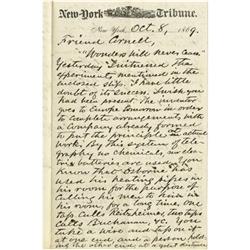 New-York Tribune.
New York, Oct. 8, 1869.
Friend Cornell,
"Wonders will never cease"
Yesterday I witnessed the
experiments mentioned in the
enclosed slips. I have little
doubt of its success. I wish you
had been present. The inventor
goes to Europe tomorrow in order
to complete arrangements with
a Company already formed
to put the principle in actual
work. By this system of tele-
graphy no Chemicals, no elec-
tric batteries are used. You
know that Osborne has
used his heating pipes in
his room for the purpose of
calling his men to him in
his room for a long time, one
tap calls Ketchums, two taps
calls Buchanan, &c. You
take a wire and tap on it
at one end, and a person hold-
ing the other end at a